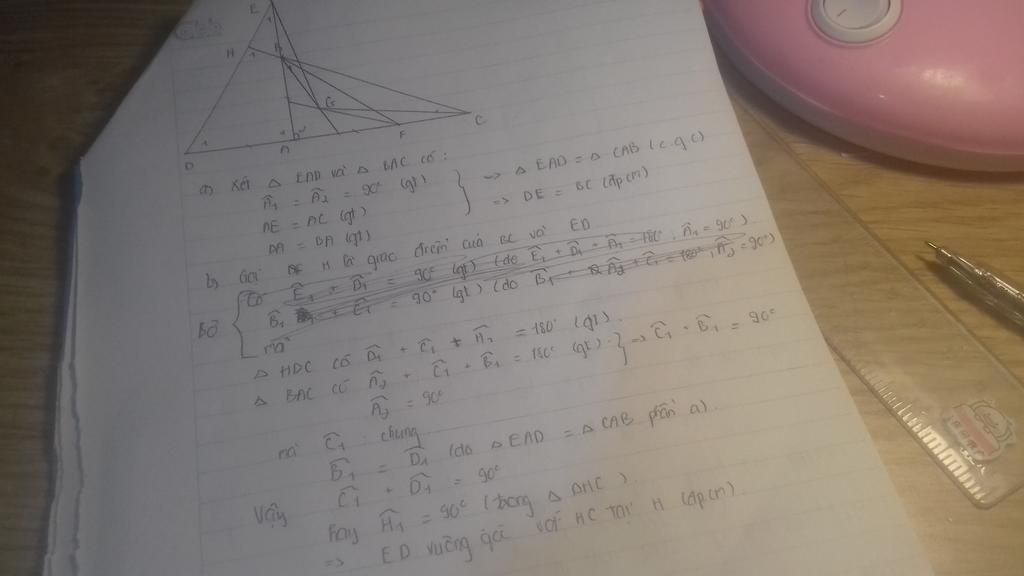 E
H
B
G
D
A
F
C
a) Xét Δ EAD và Δ BAC có:
Â1 = Â2 = 90° (gt)
AE = AC (gt)
DA = BA (gt)
=> Δ EAD = Δ CAB (c.g.c)
=> DE = BC (đpcm)
b) Gọi H là giao điểm của BC và ED
Bỏ
Có Ê1 + D̂1 = 90° (gt) (do Ê1 + D̂1 + Â1 = 180°, Â1 = 90°)
B̂1 + Ĉ1 = 90° (gt) (do B̂1 + Â2 + Ĉ1 = 180°, Â2 = 90°)
mà
Δ HDC có D̂1 + Ĉ1 + Ĥ1 = 180° (gt).
Δ BAC có Â2 + Ĉ1 + B̂1 = 180° (gt)
Â2 = 90°
=> Ĉ1 + B̂1 = 90°
mà Ĉ1 chung
B̂1 = D̂1 (do Δ EAD = Δ CAB phần a).
Vậy Ĉ1 + D̂1 = 90°
hay Ĥ1 = 90° (trong Δ DHC).
=> ED vuông góc với HC tại H (đpcm)